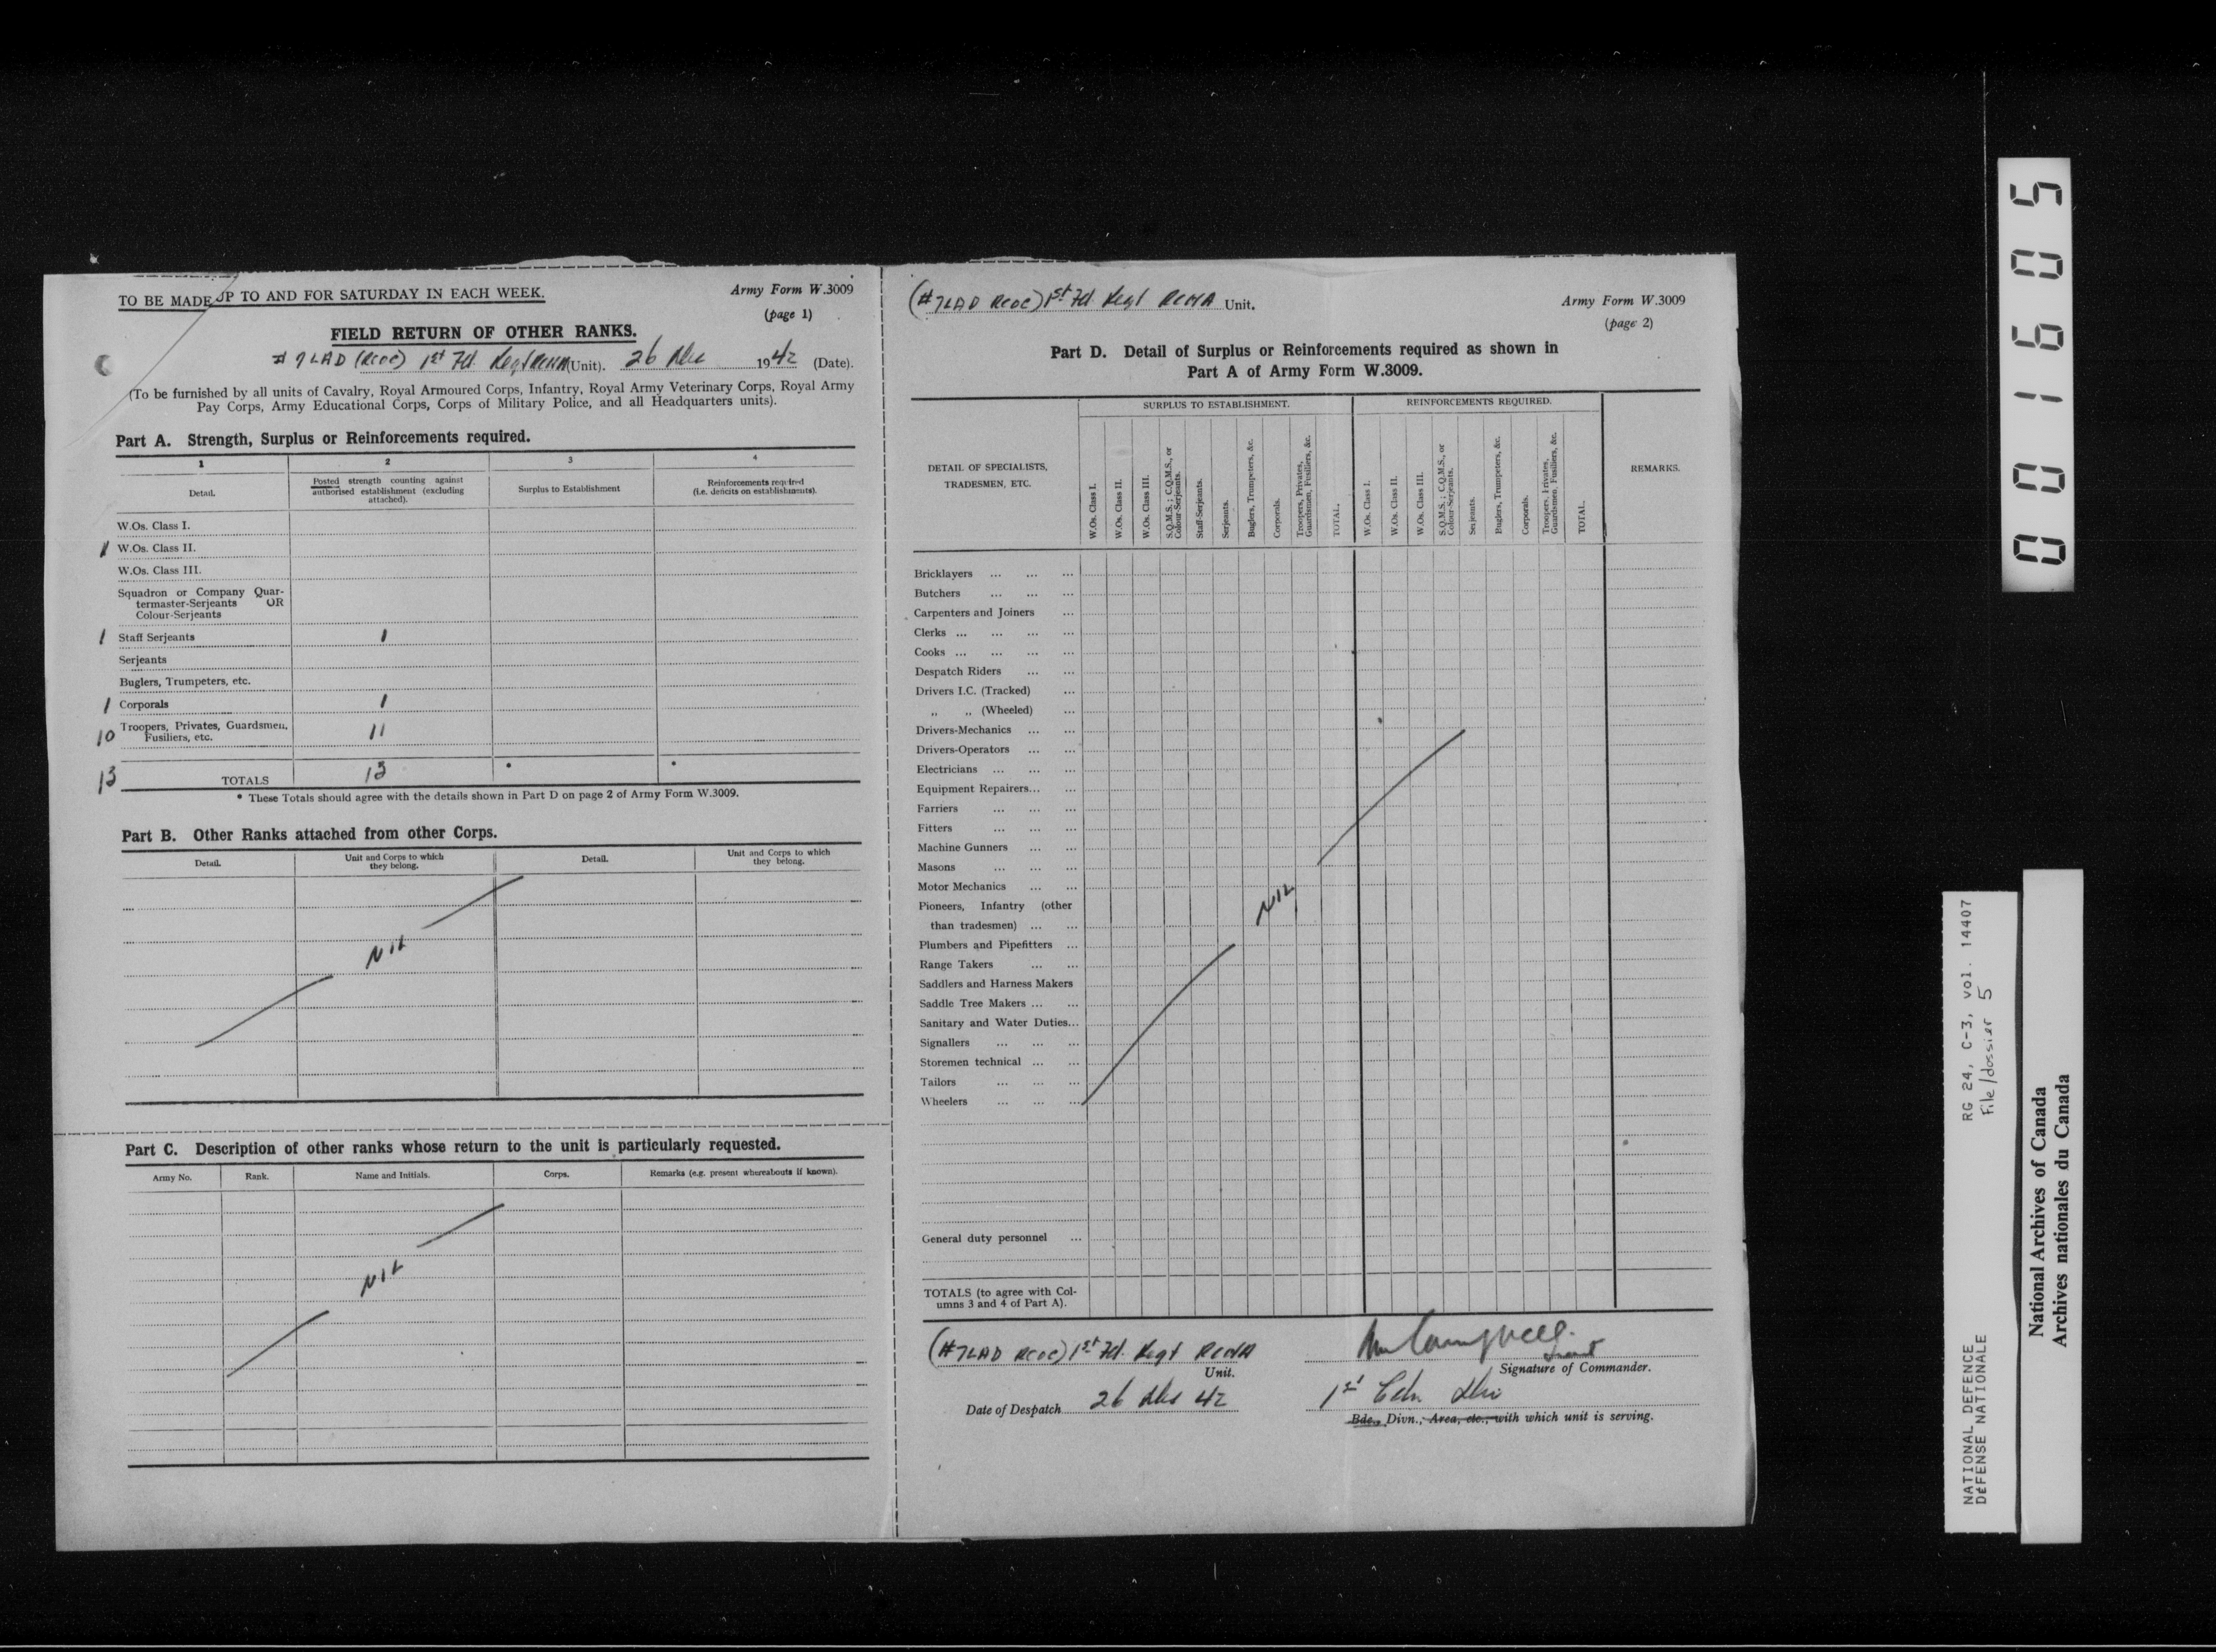 TO BE MADE UP TO AND FOR SATURDAY IN EACH WEEK.
Army Form W.3009
(page 1)
FIELD RETURN OF OTHER RANKS.
# 7 LAD (RCOC) 1st Fd. Regt RCHA (Unit). 26 Dec 1942 (Date).
(To be furnished by all units of Cavalry, Royal Armoured Corps, Infantry, Royal Army Veterinary Corps, Royal Army
Pay Corps, Army Educational Corps, Corps of Military Police, and all Headquarters units).
Part A. Strength, Surplus or Reinforcements required.
1 2 3 4
Detail. Posted strength counting against authorised establishment (excluding attached). Surplus to Establishment Reinforcements required (i.e. deficits on establishments).
W.Os. Class I.
1 W.Os. Class II.
W.Os. Class III.
Squadron or Company Quar-
termaster-Serjeants OR
Colour-Serjeants
1 Staff Serjeants 1
Serjeants
Buglers, Trumpeters, etc.
1 Corporals 1
10 Troopers, Privates, Guardsmen, 11
Fusiliers, etc.
13 TOTALS 13 * *
* These Totals should agree with the details shown in Part D on page 2 of Army Form W.3009.
Part B. Other Ranks attached from other Corps.
Detail. Unit and Corps to which they belong. Detail. Unit and Corps to which they belong.
NIL
Part C. Description of other ranks whose return to the unit is particularly requested.
Army No. Rank. Name and Initials. Corps. Remarks (e.g. present whereabouts if known).
NIL
(#7LAD RCOC) 1st Fd Regt RCHA Unit.
Army Form W.3009
(page 2)
Part D. Detail of Surplus or Reinforcements required as shown in
Part A of Army Form W.3009.
SURPLUS TO ESTABLISHMENT. REINFORCEMENTS REQUIRED.
DETAIL OF SPECIALISTS,
TRADESMEN, ETC.
W.Os. Class I.
W.Os. Class II.
W.Os. Class III.
S.Q.M.S.; C.Q.M.S., or Colour-Serjeants.
Staff-Serjeants.
Serjeants.
Buglers, Trumpeters, &c.
Corporals.
Troopers, Privates, Guardsmen, Fusiliers, &c.
TOTAL.
W.Os. Class I.
W.Os. Class II.
W.Os. Class III.
S.Q.M.S.; C.Q.M.S., or Colour-Serjeants.
Serjeants.
Buglers, Trumpeters, &c.
Corporals.
Troopers, Privates, Guardsmen, Fusiliers, &c.
TOTAL.
REMARKS.
Bricklayers ... ... ...
Butchers ... ... ...
Carpenters and Joiners ...
Clerks ... ... ... ...
Cooks ... ... ... ...
Despatch Riders ... ...
Drivers I.C. (Tracked) ...
„ „ (Wheeled) ...
Drivers-Mechanics ... ...
Drivers-Operators ... ...
Electricians ... ... ...
Equipment Repairers... ...
Farriers ... ... ...
Fitters ... ... ...
Machine Gunners ... ...
Masons ... ... ...
Motor Mechanics ... ...
Pioneers, Infantry (other
than tradesmen) ... ...
NIL
Plumbers and Pipefitters ...
Range Takers ... ...
Saddlers and Harness Makers
Saddle Tree Makers ... ...
Sanitary and Water Duties...
Signallers ... ... ...
Storemen technical ... ...
Tailors ... ... ...
Wheelers ... ... ...
General duty personnel ...
TOTALS (to agree with Col-
umns 3 and 4 of Part A).
(#7LAD RCOC) 1st Fd. Regt RCHA
Unit.
Campbell. Lieut
Signature of Commander.
Date of Despatch 26 Dec 42
1st Cdn Div
Bde., Divn., Area, etc., with which unit is serving.
001605
RG 24, C-3, vol. 14407
File/dossier 5
NATIONAL DEFENCE
DÉFENSE NATIONALE
National Archives of Canada
Archives nationales du Canada